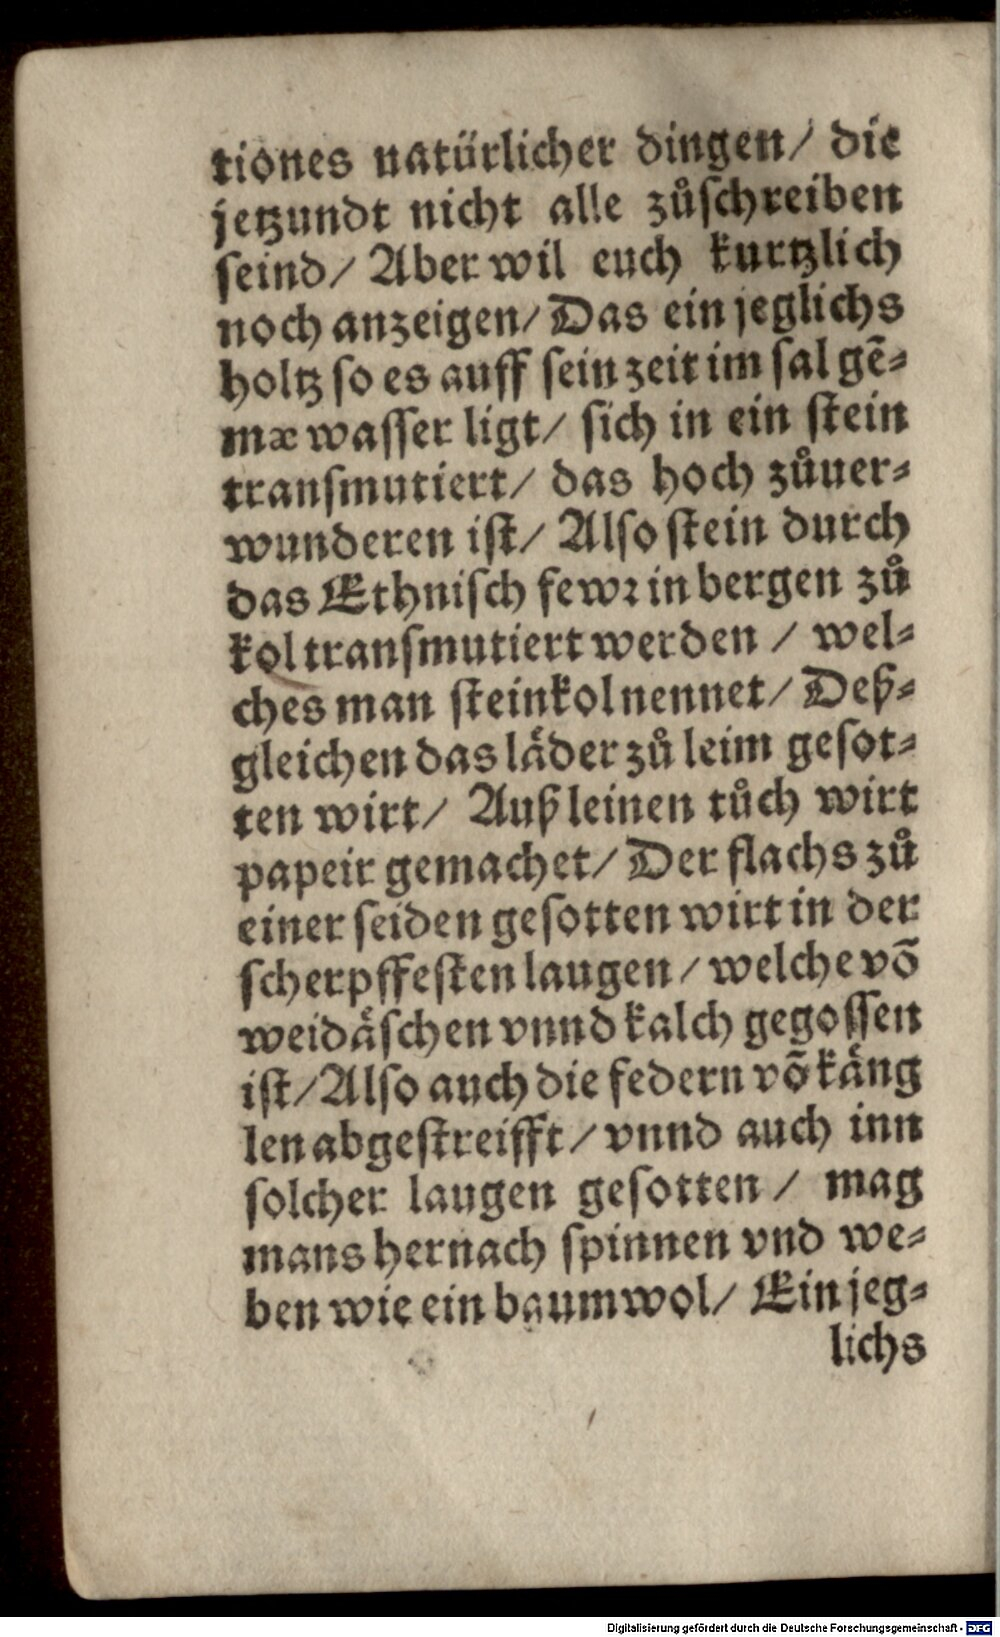 tiones natürlicher dingen/ die
jetzundt nicht alle zůſchreiben
ſeind/ Aber wil euch kurtzlich
noch anzeigen/ Das ein jeglichs
holtz ſo es auff ſein zeit im ſal gē⸗
mæ waſſer ligt/ ſich in ein ſtein
transmutiert/ das hoch zůuer⸗
wunderen iſt/ Alſo ſtein durch
das Ethniſch fewꝛ in bergen zů
kol transmutiert werden / wel⸗
ches man ſteinkol nennet/ Deß⸗
gleichen das läder zů leim geſot⸗
ten wirt/ Auß leinen tůch wirt
papeir gemachet/ Der flachs zů
einer ſeiden geſotten wirt in der
ſcherpffeſten laugen/ welche võ
weidäſchen vnnd kalch gegoſſen
iſt/ Alſo auch die federn võ käng
len abgeſtreifft/ vnnd auch inn
ſolcher laugen geſotten / mag
mans hernach ſpinnen vnd we⸗
ben wie ein baumwol/ Ein jeg⸗
lichs
Digitalisierung gefördert durch die Deutsche Forschungsgemeinschaft - DFG